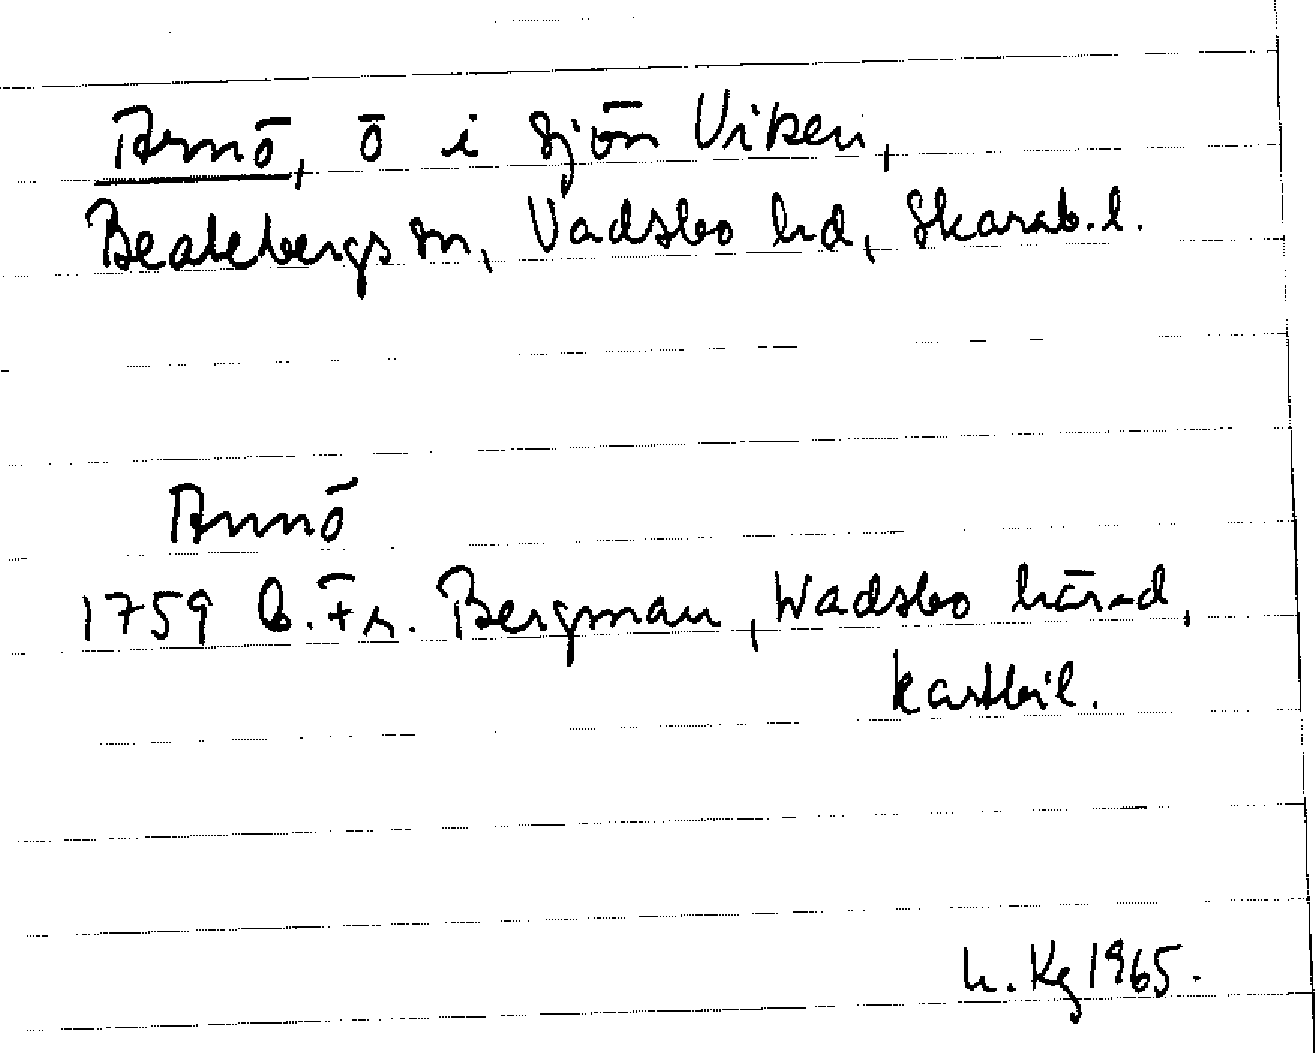 Armö, ö i sjön Viken,
Beatebergs sn, Vadsbo hd, Skarab. l.
Annö
1759 B. Fr. Bergman, Wadsbo härad,
kartbil.
h. Kg 1965.